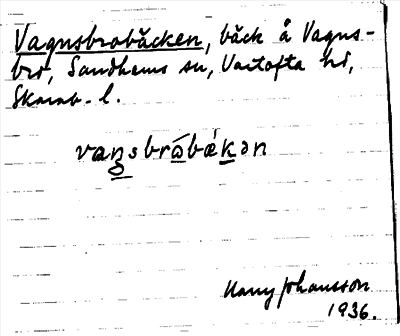 Vagnsbrobäcken, bäck å Vagns-
bro, Sandhems sn, Vartofta hd,
Skarab. l.
vaŋsbrωbækən
Harry Johansson
1936.